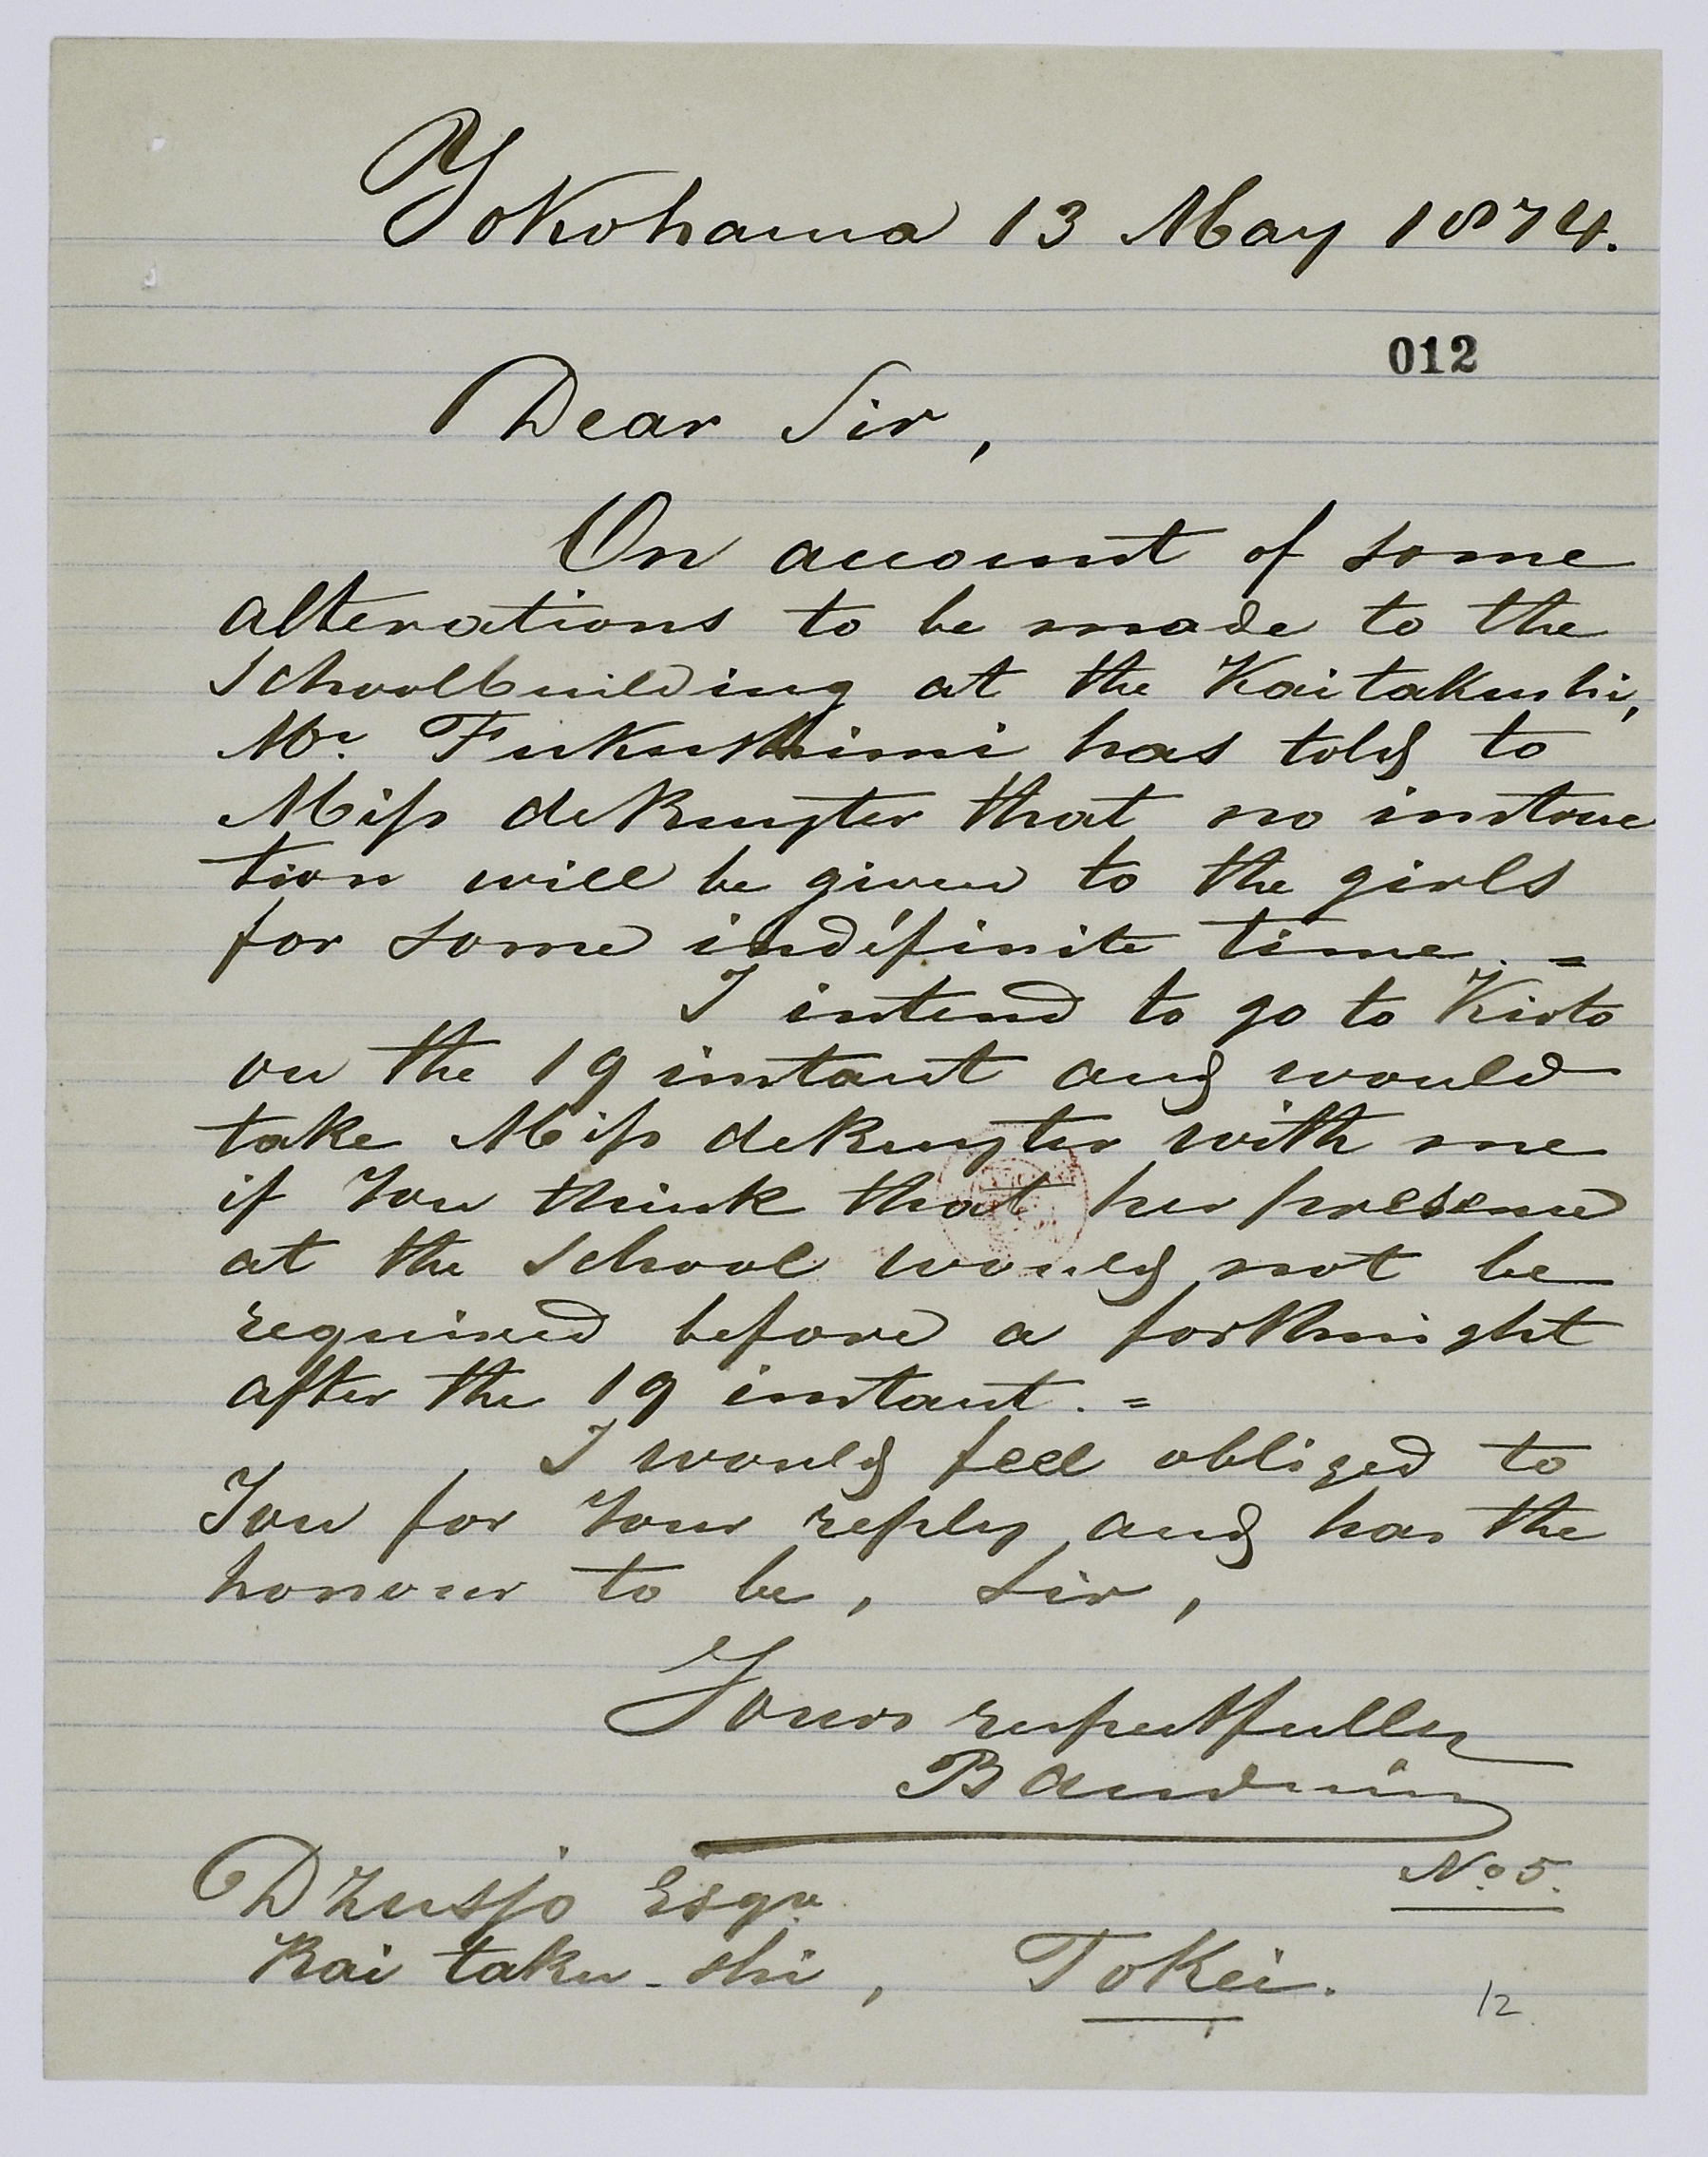 Yokohama 13 May 1874.
012
Dear Sir,
On account of some
alterations to be made to the
schoolbuilding at the Kaitakushi,
Mr. Fukushimi has told to
Miss deRuyter that no instruc
tion will be given to the girls
for some indéfinite time. =
I intend to go to Kioto
on the 19 instant and would
take Miss deRuyter with me
if You think that her presence
at the school would not be
required before a forthnight
after the 19 instant. =
I would feel obliged to
You for Your reply and has the
honour to be, Sir,
Yours respectfully
Bauduin
No. 5.
Dzusjo Esqr.
Kai taku-shi, Tokei.
12